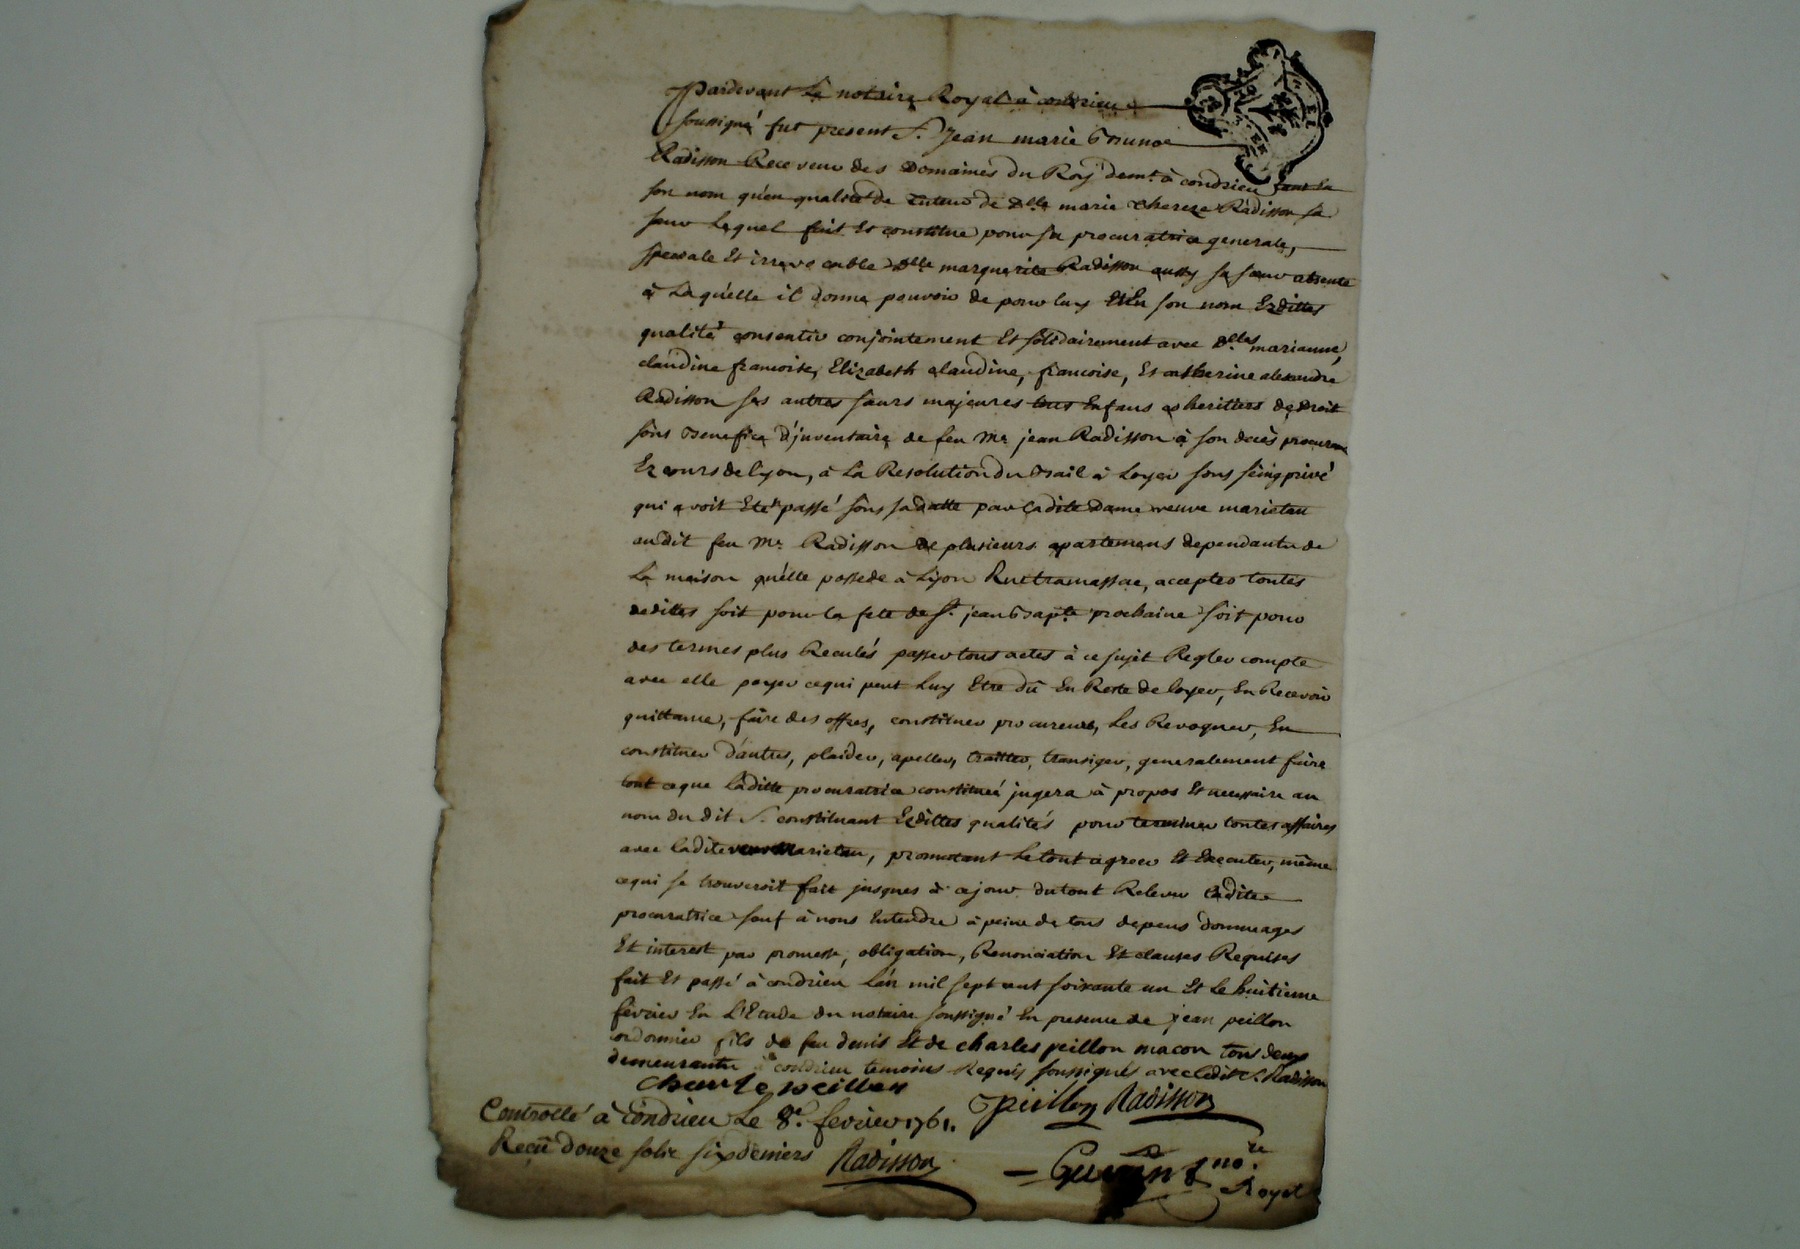 Pardevant Le notaire Royal à condrieu
soussigné fut present Sr. Jean marie Brunoe
Radisson Receveur des Domaines du Roy demt. à condrieu tant En
son nom qu'en qualité de tuteur de Dlle marie thereze Radisson sa
soeur Lequel fait Et constitue pour sa procuratrice generale,
specialle Et irrevocable Dlle marguerite Radisson aussy sa soeur absente
à Laquelle il donne pouvoir de pour luy Et En son nom Ezdittes
qualités consentir conjointement Et solidairement avec Dlles marianne,
claudine francoise, Elizabeth claudine, francoise, Et catherine alexandre
Radisson ses autres soeurs majeures tous Enfans & heritiers de droit
sous Benefice d'juventaire de feu Me jean Radisson à son decès procureur
Ez cours de lyon, à La Resolution du Bail à Loyer sous seing privé
qui avoit Eté passé sous sa datte par Ladite Dame veuve marietan
audit feu Me Radisson de plusieurs apartemens dependants de
La maison qu'elle possede à Lyon Rue tramassac, accepter toutes
dedites soit pour la fete de St. jean Bapte prochaine soit pour
des termes plus Reculés passer tous actes à ce sujet Regler compte
avec elle payer ce qui peut Luy Etre dû En Reste de loyer, En Recevoir
quittance, faire des offres, constituer procureurs, Les Revoquer, En
constituer d'autres, plaider, apeller, traitter, transiger, generalement faire
tout ce que Laditte procuratrice constituée jugera à propos Et necessaire au
nom du dit Sr. constituant Ezdittes qualités pour terminer toutes affaires
avec ladite veuve Marietan, promettant Le tout agreer Et Executer, même
ce qui se trouveroit fait jusques à ce jour du tout Relever Ladite
procuratrice sauf à nous Entendre à peine de tous depens dommages
Et interest par promesse, obligation, Renonciation Et clauses Requises
fait Et passé à condrieu L'an mil sept cent soixante un Et Le huitieme
fevrier En L'Etude du notaire soussigné En presence de jean peillon
cordonnier fils de feu denis Et de charles peillon macon tous deux
demeurants à condrieu temoins Requis soussignés avec ledit Sr. Radisson
charle peillon
Peillon Radisson
Controllé à Condrieu Le 8e. fevrier 1761.
Reçû douze sols six deniers Radisson
nore
Royal